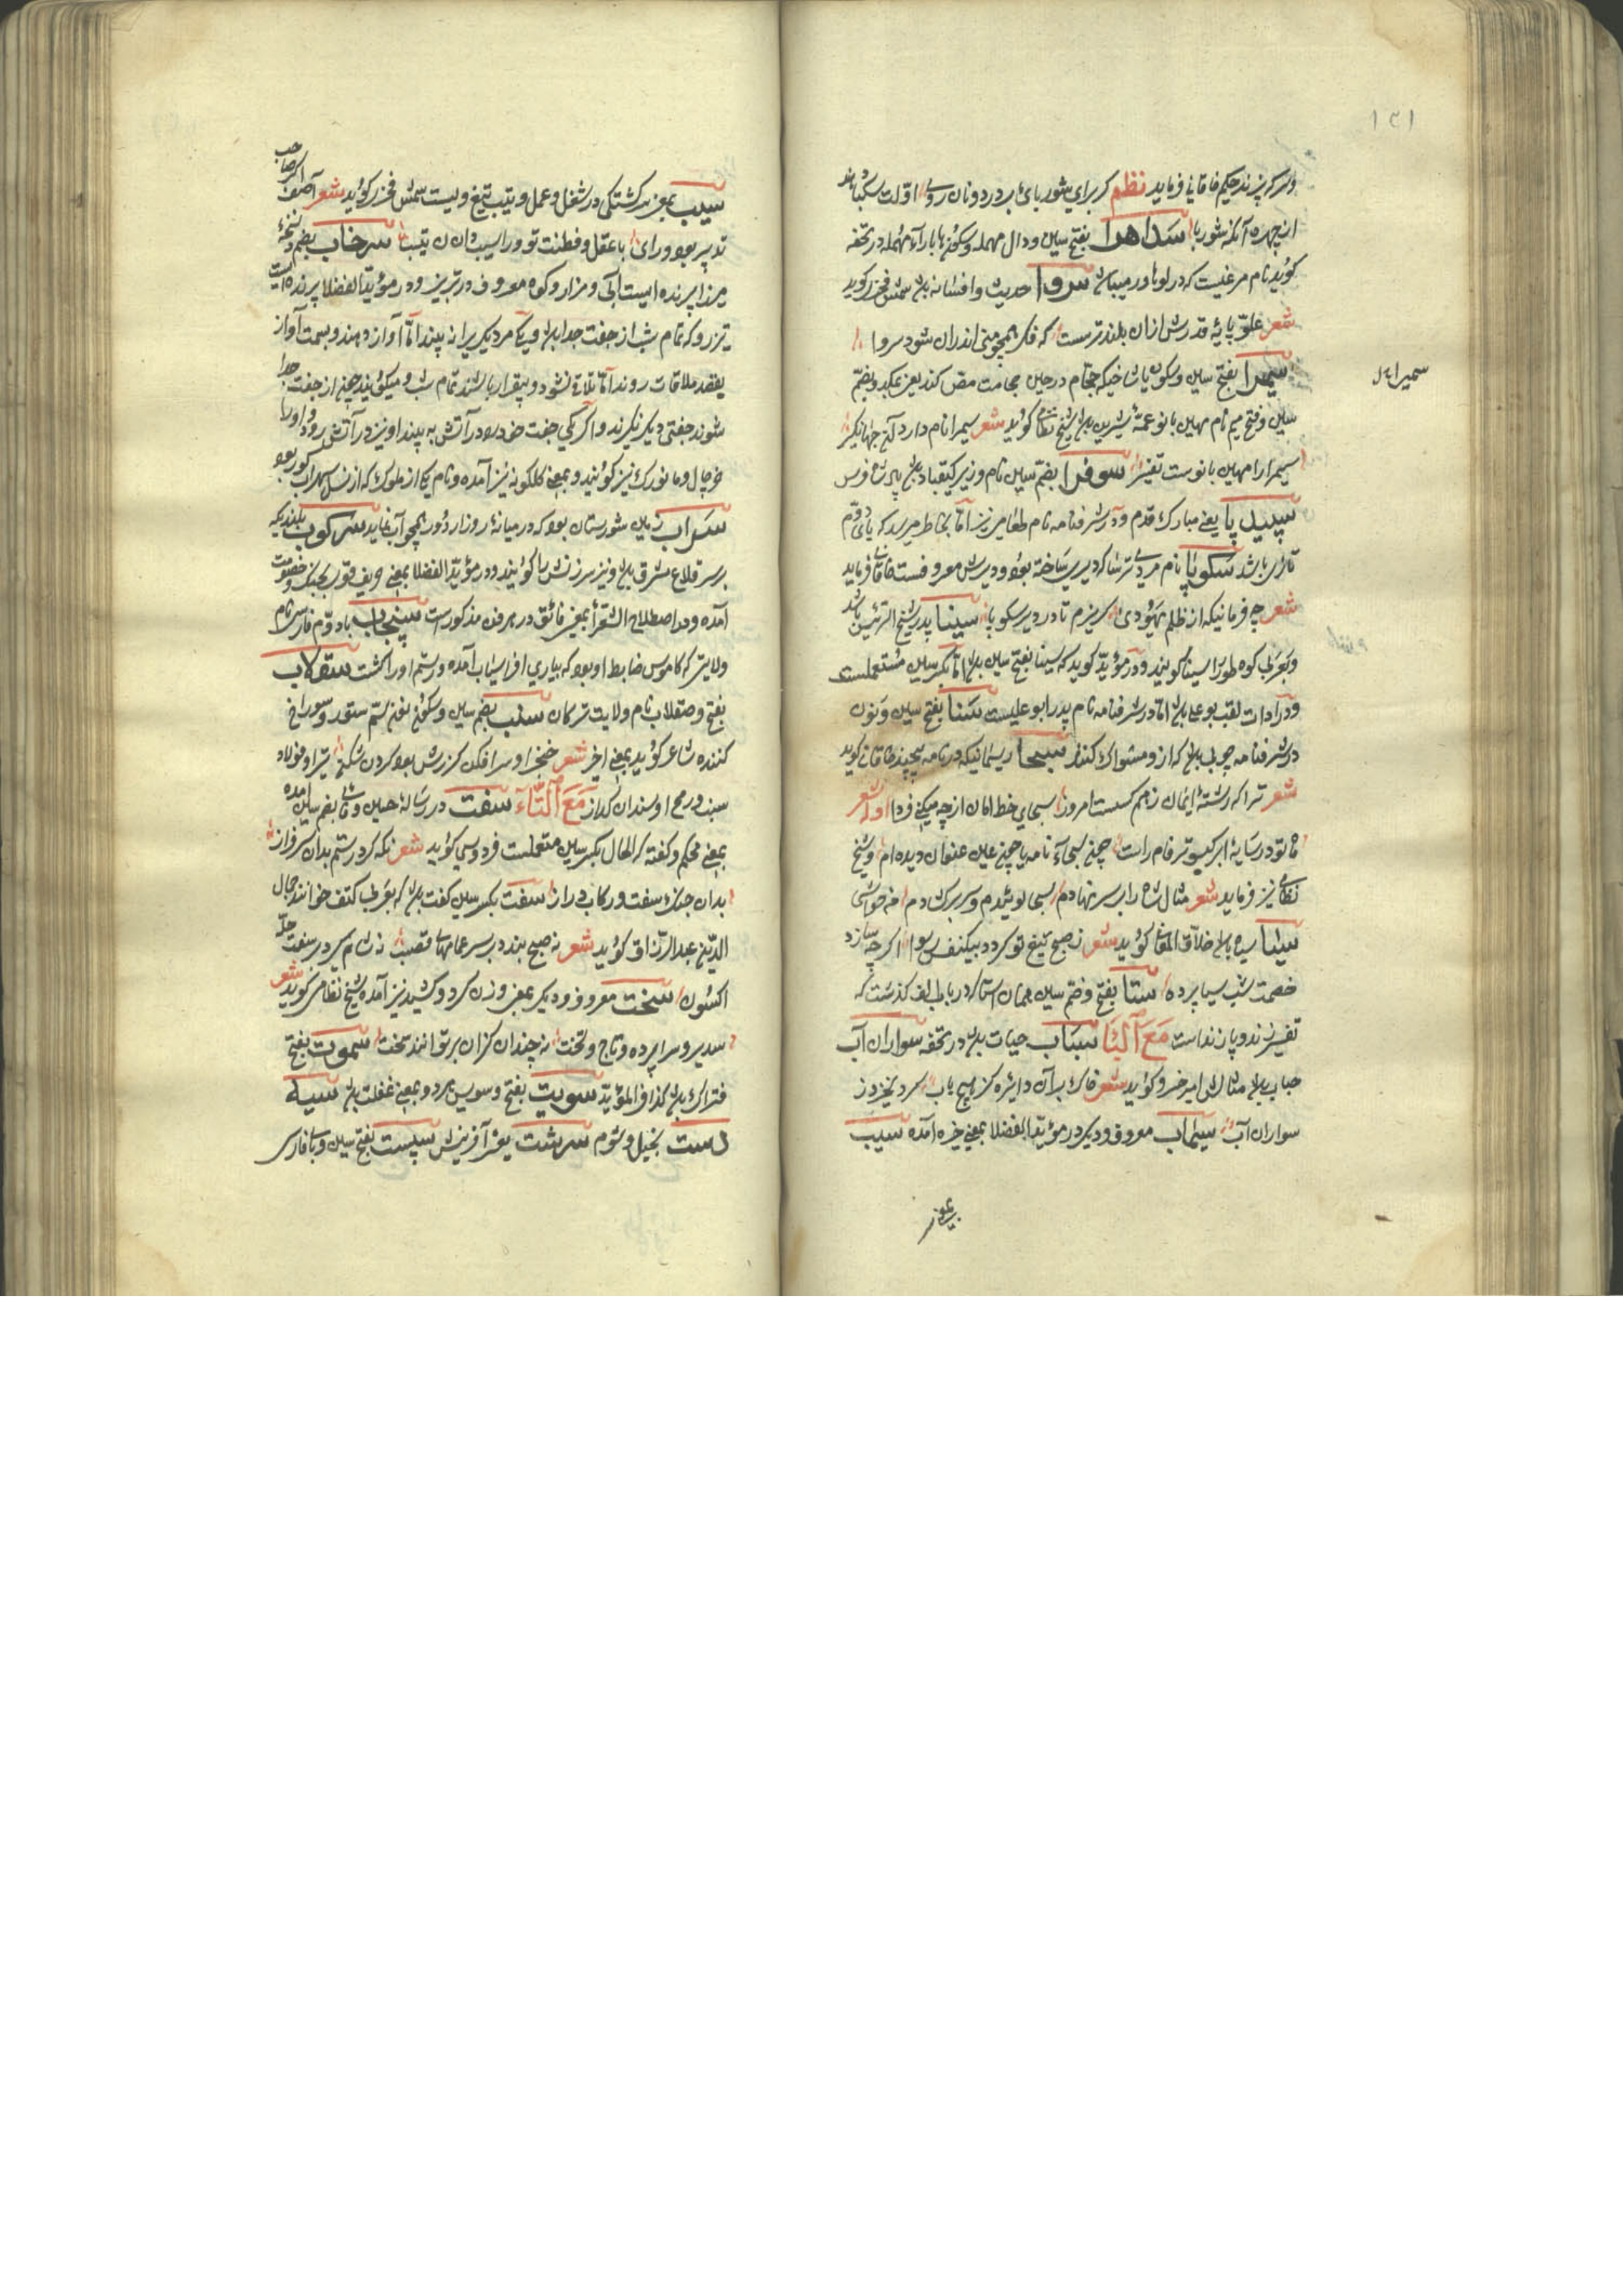 ۱۳۱
وسرکه پزند حکیم خاقانی فرماید نظم کز برای شوربای بر در دونان روی اولت سکبا دهند
از چهره آنگه شوربا سداهرا بفتح سین و دال مهمله وسکون ها با راء مهمله در تحفه
گوید نام مرغیست که در لوهاور میباشد سروا حدیث و افسانه باشد شمس فخری گوید
شعر علو پایه قدرش ازان بلندترست که فکر همچو منی اندران شود سروا
سمیرا بفتح سین وسکون یا شاخیکه حجام در حین حجامت مص کند یعنی بمکد وبضم
سمیرا
سین وفتح میم نام مهین بانو عمه شیرین باشد شیخ نظامی گوید شعر سمیرا نام دارد آن جهانگیر
سمیرا را مهین بانوست تفسیر سوفرا بضم سین نام وزیر کیقباد باشد پادشاه فرس
سپید پا یعنی مبارک قدم ودر شرفنامه نام طعامیست اما بخاطر میرسد که بای دوم
تازی باشد سکوبا نام مردی ترسا که دیری ساخته بود ودیرش معروفست خاقانی فرماید
شعر چه فرمائی که از ظلم یهودی گریزم تا در دیر سکوبا سینا پدر شیخ الرئیس باشد
وبعربی کوه طور را سینا گویند ودر مؤید گوید که سینا بفتح سین باشد اما بکسر سین مستعملست
ودر ادات لقب بوعلی باشد اما در شرفنامه نام پدر ابو علیست سنا بفتح سین ونون
در شرفنامه چوبی باشد که ازو مسواک کنند سحا ریسمانیکه در نامه پیچند خاقانی گوید
شعر ترا که رشته ایمان زهم گسست امروز سحای خط امان از چه میکنی فردا اوله شعر
تا تو در سایه ابر کبوتر فام راست چون سحاء نامه یا چون عین عنوان دیده ام وشیخ
نظامی نیز فرماید شعر مثال شاه را بر سر نهادم سحا بوسیدم وسر برگشادم
سیا سیاه باشد خلاق المعانی گوید شعر ز صبح تیغ تو گردد بیکنفس رسوا اگرچه سازد
خصمت شب سیا پرده ستا بفتح وضم سین همان استا که در باب الف گذشت که
تفسیر زند و پازند است مَعَ البَا سباب حیات باشد در تحفه سواران آب
حباب باشد مثالش امیر خسرو گوید شعر خاک بران دایره کز هیچ باب گرد نخیزد ز
سواران آب سیماب معروف ودیگر در مؤید الفضلا بمعنی خیره آمده سیب
بمعنی
سیب بمعنی سرگشتگی در شغل وعمل وتیب تبع ویست شمس فخری گوید شعر آصف اگر صاحب
تدبیر بود ورای با عقل وفطنت تو ورا سیب دان تیب سرخاب بضم در نسخه
میرزا پرنده ایست آبی ومزار وکوه معروف در تبریز ودر مؤید الفضلا پرنده ایست
نر و که تمام شب از جفت جدا باشد ویکدیگر را نه بینند اما آواز دهند وبسمت آواز
بقصد ملاقات روند اما تلاقی نشود وبیقرار باشند تمام شب ومیگویند چون از جفت جدا
شوند جفتی دیگر نگیرند واگر یکی جفت خود را در آتش به بیند او نیز در آتش رود و او را
خرچال و ما نورک نیز گویند وبمعنی گلگونه نیز آمده ونام یکی از ملوک که از نسل سهراب گور بود
سراب زمین شورستان بود که در میانه روز از دور همچو آب نماید سرکوب بلندیکه
بر سر قلاع مشرف باشد ونیز سرزنش را گویند ودر مؤید الفضلا بمعنی حریف قوی بجنگ وخصومت
آمده ودر اصطلاح الشعرا بمعنی فائق در هر فن مذکورست سپنجاب باء دوم فارسی نام
ولایتی که کاموس ضابط او بود که بیاری افراسیاب آمده ورستم او را کشت سقلاب
بفتح وصقلاب نام ولایت ترکان سنب بضم سین وسکون نون سم ستور وسوراخ
کننده شاعر گوید بمعنی اخیر شعر خنجر او سرافکن گرزش بود گردن شکن تیر او فولاد
سنب ورمح او سندان گذار مَعَ التَّاء سفت در رساله حسین وفائی بضم سین آمده
بمعنی محکم وگفته که الحال بکسر سین مستعملست فردوسی گوید شعر نگه کرد رستم بدان سرفراز
بدان چنگ سفت ورکاب دراز سفت بکسر سین کفت باشد که بعربی کتف خوانند جمال
الدین عبد الرزاق گوید شعر نه صبح بندد بر سر عمامهای قصب نه شام گیرد بر سفت حله
اکسون سخت معروف ودیگر بمعنی وزن کرد وکشید نیز آمده شیخ نظامی گوید شعر
سریر وسراپرده وتاج وتخت نه چندان گران بر توانند سخت سموت بفتح
فتراک باشد کذا فی المؤید سویت بفتح وسوبس هر دو بمعنی غفلت باشد سیه
دست بخیل وشوم سرشت یعنی آفرینش سپست بفتح سین وبا فارسی